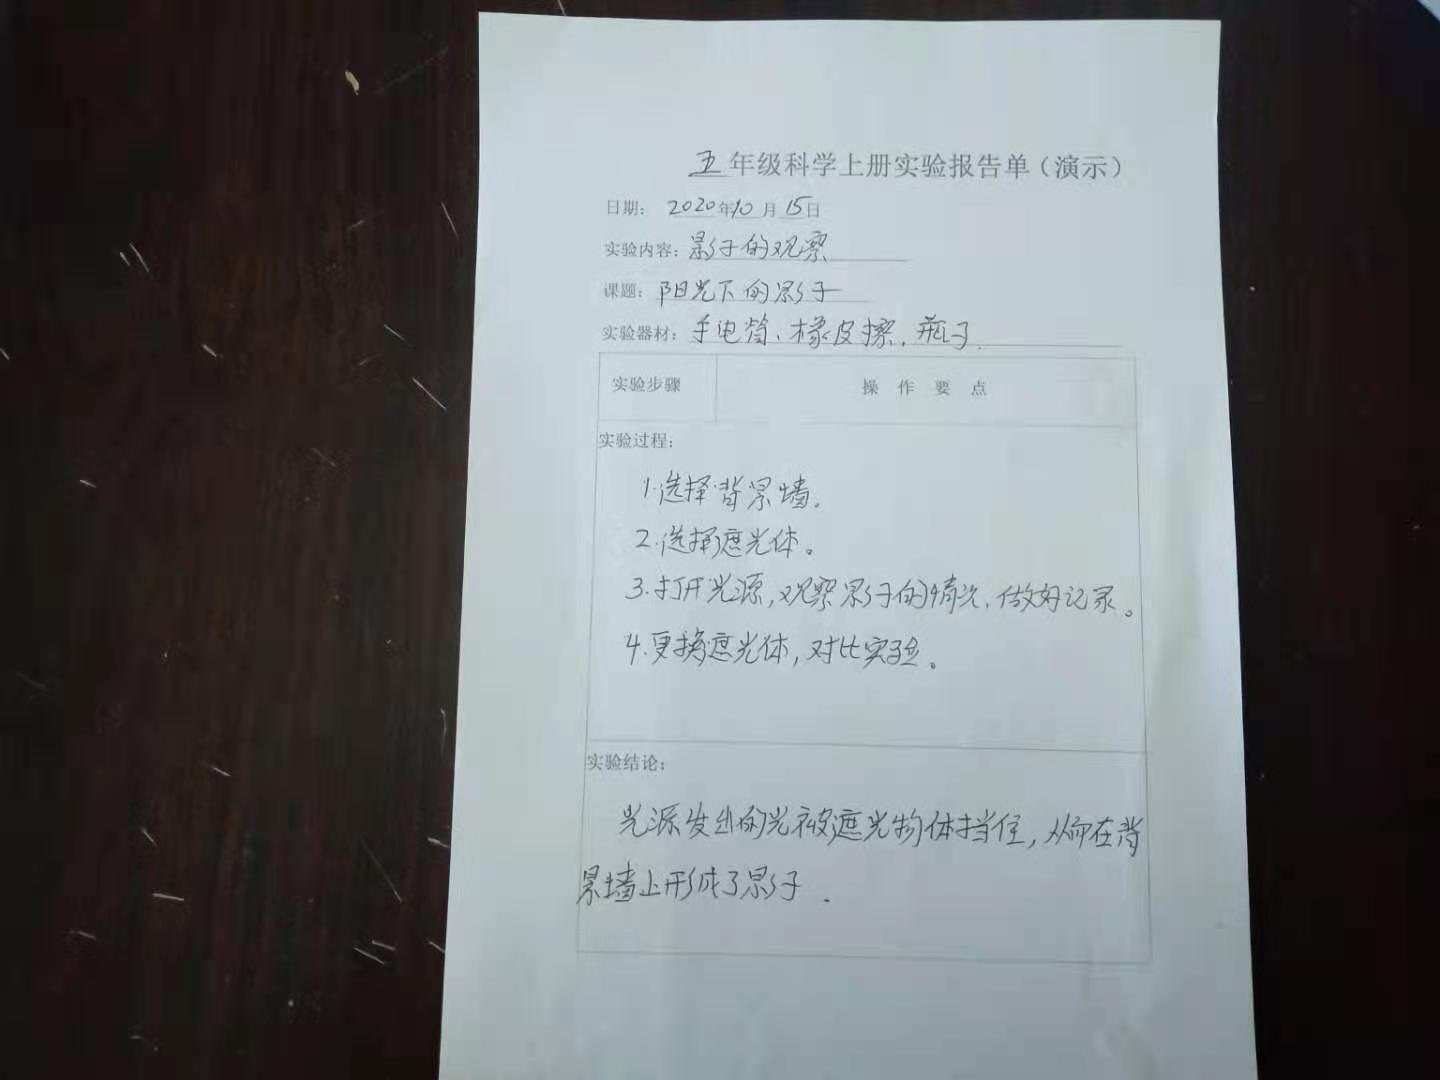 五年级科学上册实验报告单（演示）
日期： 2020年10月15日
实验内容：影子的观察
课题：阳光下的影子
实验器材：手电筒、橡皮擦、瓶子.
实验步骤 操 作 要 点
实验过程：
1.选择背景墙。
2.选择遮光体。
3.打开光源，观察影子的情况，做好记录。
4.更换遮光体，对比实验。
实验结论：
光源发出的光被遮光物体挡住，从而在背
景墙上形成了影子.